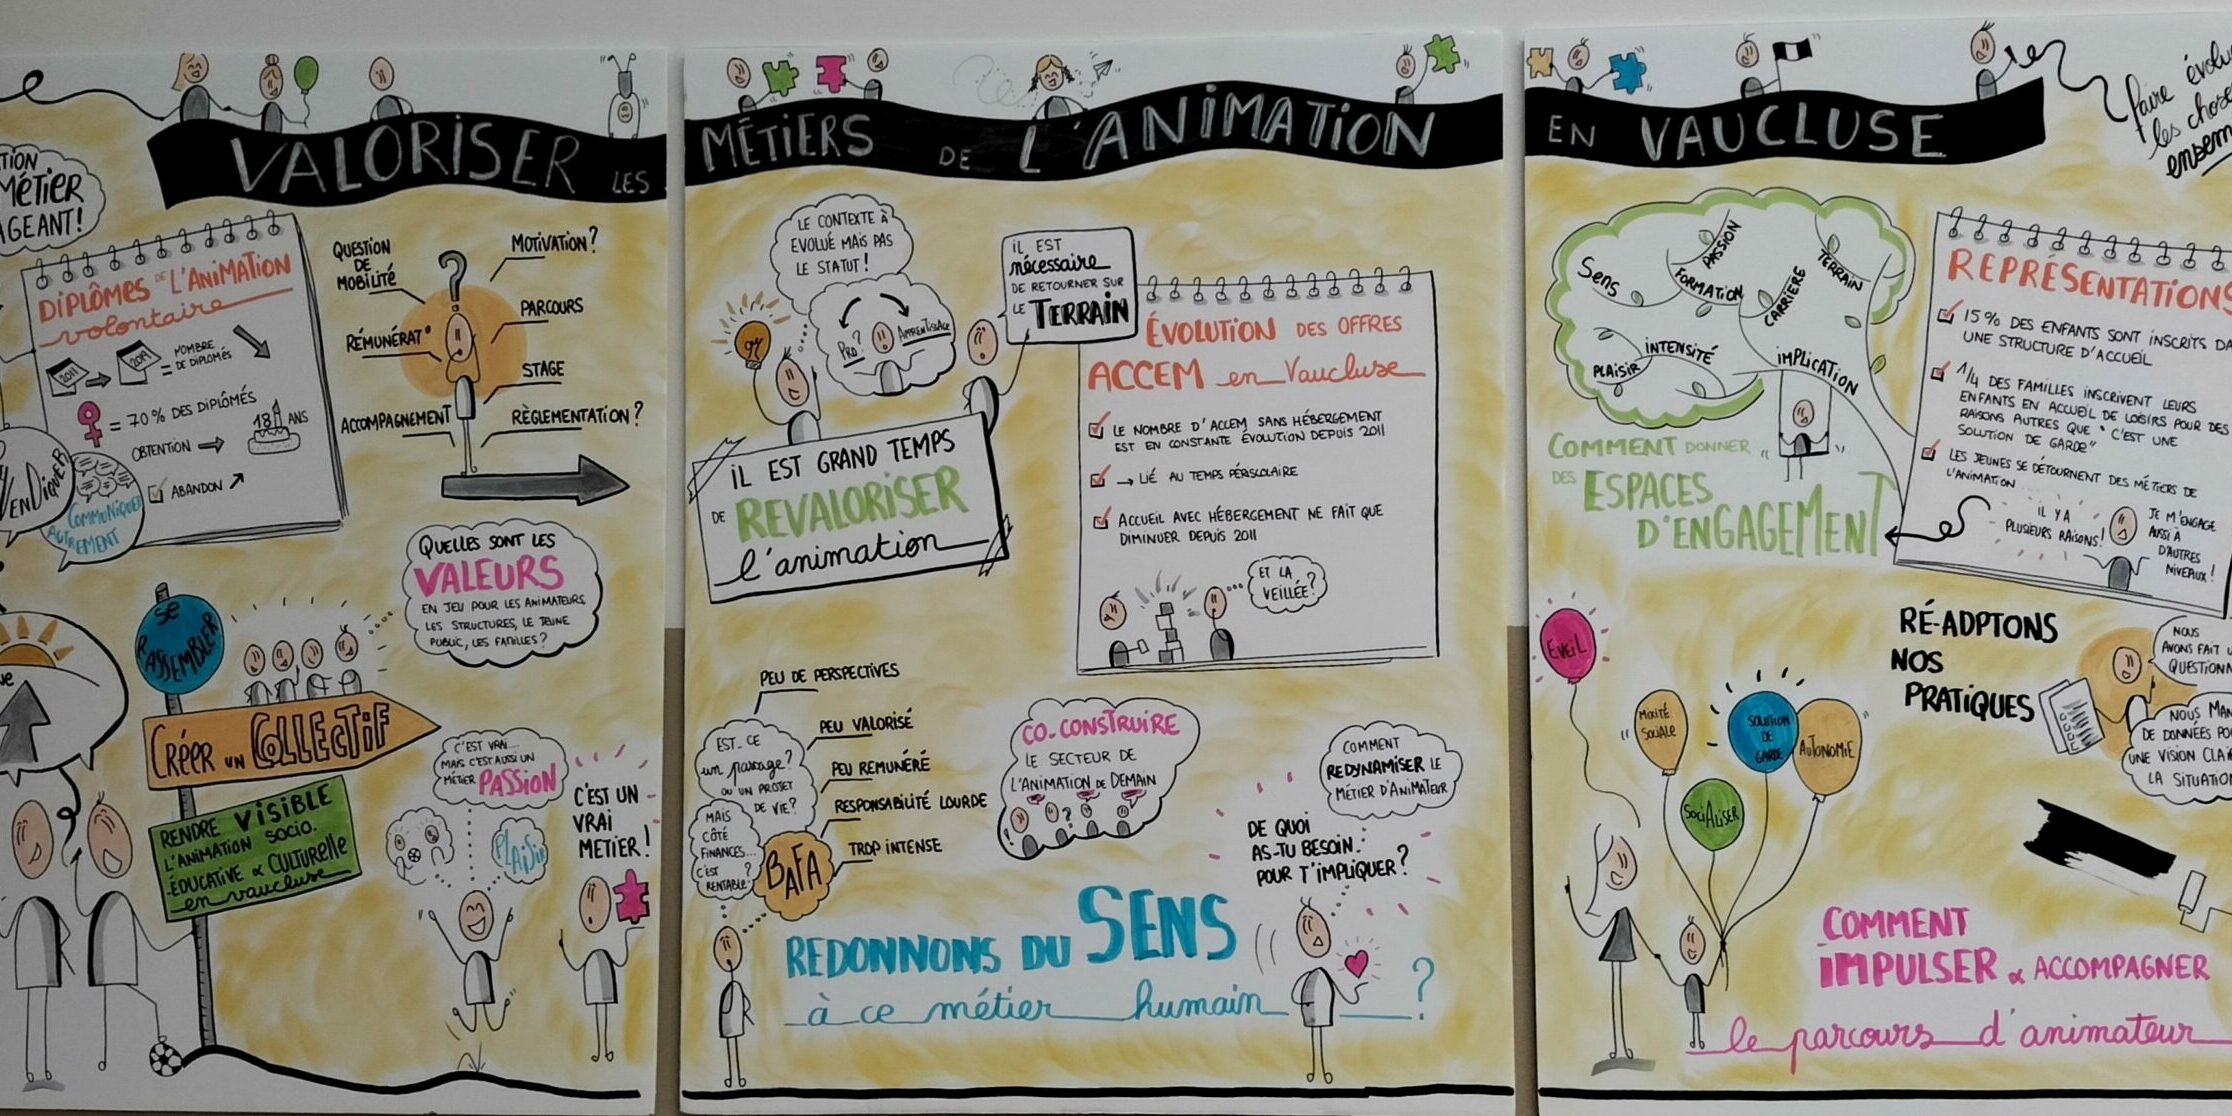 VALORISER LES
MÉTIERS DE L'ANIMATION
EN VAUCLUSE
faire
les
MÉTIER
DIPLÔMES DE L'ANIMATION
volontaire
2011
2019
NOMBRE
DE DIPLOMÉS
= 70% DES DIPLÔMÉS
OBTENTION
18 ANS
ABANDON
COMMUNIQUER
AUTREMENT
QUESTION
DE
MOBILITÉ
MOTIVATION?
PARCOURS
RÉMUNÉRAT°
STAGE
ACCOMPAGNEMENT
RÈGLEMENTATION?
QUELLES SONT LES
VALEURS
EN JEU POUR LES ANIMATEURS,
LES STRUCTURES, LE JEUNE
PUBLIC, LES FAMILLES?
SE
RASSEMBLER
CRÉER UN COLLECTIF
RENDRE VISIBLE
L'ANIMATION SOCIO.
ÉDUCATIVE & CULTURELLE
en vaucluse
C'EST VRAI...
MAIS C'EST AUSSI UN
MÉTIER PASSION
PLAISIR
C'EST UN
VRAI
METIER!
LE CONTEXTE À
EVOLUÉ MAIS PAS
LE STATUT!
PRO?
APPRENTISSAGE
IL EST
nécessaire
DE RETOURNER SUR
LE TERRAIN
IL EST GRAND TEMPS
DE REVALORISER
l'animation
ÉVOLUTION DES OFFRES
ACCEM en Vaucluse
LE NOMBRE D'ACCEM SANS HÉBERGEMENT
EST EN CONSTANTE ÉVOLUTION DEPUIS 2011
→ LIÉ AU TEMPS PÉRISCOLAIRE
ACCUEIL AVEC HÉBERGEMENT NE FAIT QUE
DIMINUER DEPUIS 2011
ET LA
VEILLÉE?
PEU DE PERSPECTIVES
PEU VALORISÉ
PEU REMUNÉRÉ
RESPONSABILITÉ LOURDE
TROP INTENSE
EST-CE
un passage?
OU UN PROJET
DE VIE?
MAIS
CÔTÉ
FINANCES...
C'EST
RENTABLE?
BAFA
CO-CONSTRUIRE
LE SECTEUR DE
L'ANIMATION DE DEMAIN
?
COMMENT
REDYNAMISER LE
MÉTIER D'ANIMATEUR
DE QUOI
AS-TU BESOIN
POUR T'IMPLIQUER?
REDONNONS DU SENS
à ce métier humain ?
SENS
PASSION
FORMATION
CARRIÈRE
TERRAIN
PLAISIR
INTENSITÉ
IMPLICATION
COMMENT DONNER
DES ESPACES
D'ENGAGEMENT
REPRÉSENTATIONS
15% DES ENFANTS SONT INSCRITS
UNE STRUCTURE D'ACCUEIL
1/4 DES FAMILLES INSCRIVENT LEURS
ENFANTS EN ACCUEIL DE LOISIRS POUR DES
RAISONS AUTRES QUE "C'EST UNE
SOLUTION DE GARDE"
LES JEUNES SE DÉTOURNENT DES MÉTIERS DE
L'ANIMATION
IL Y A
PLUSIEURS RAISONS!
JE M'ENGAGE
AUSSI À
D'AUTRES
NIVEAUX!
EVEIL
MIXITÉ
SOCIALE
SOLUTION
DE
GARDE
AUTONOMIE
SOCIALISER
RÉ-ADPTONS
NOS
PRATIQUES
NOUS
AVONS FAIT
NOUS
DE DONNÉES
UNE VISION
LA
COMMENT
IMPULSER & ACCOMPAGNER
le parcours d'animateur